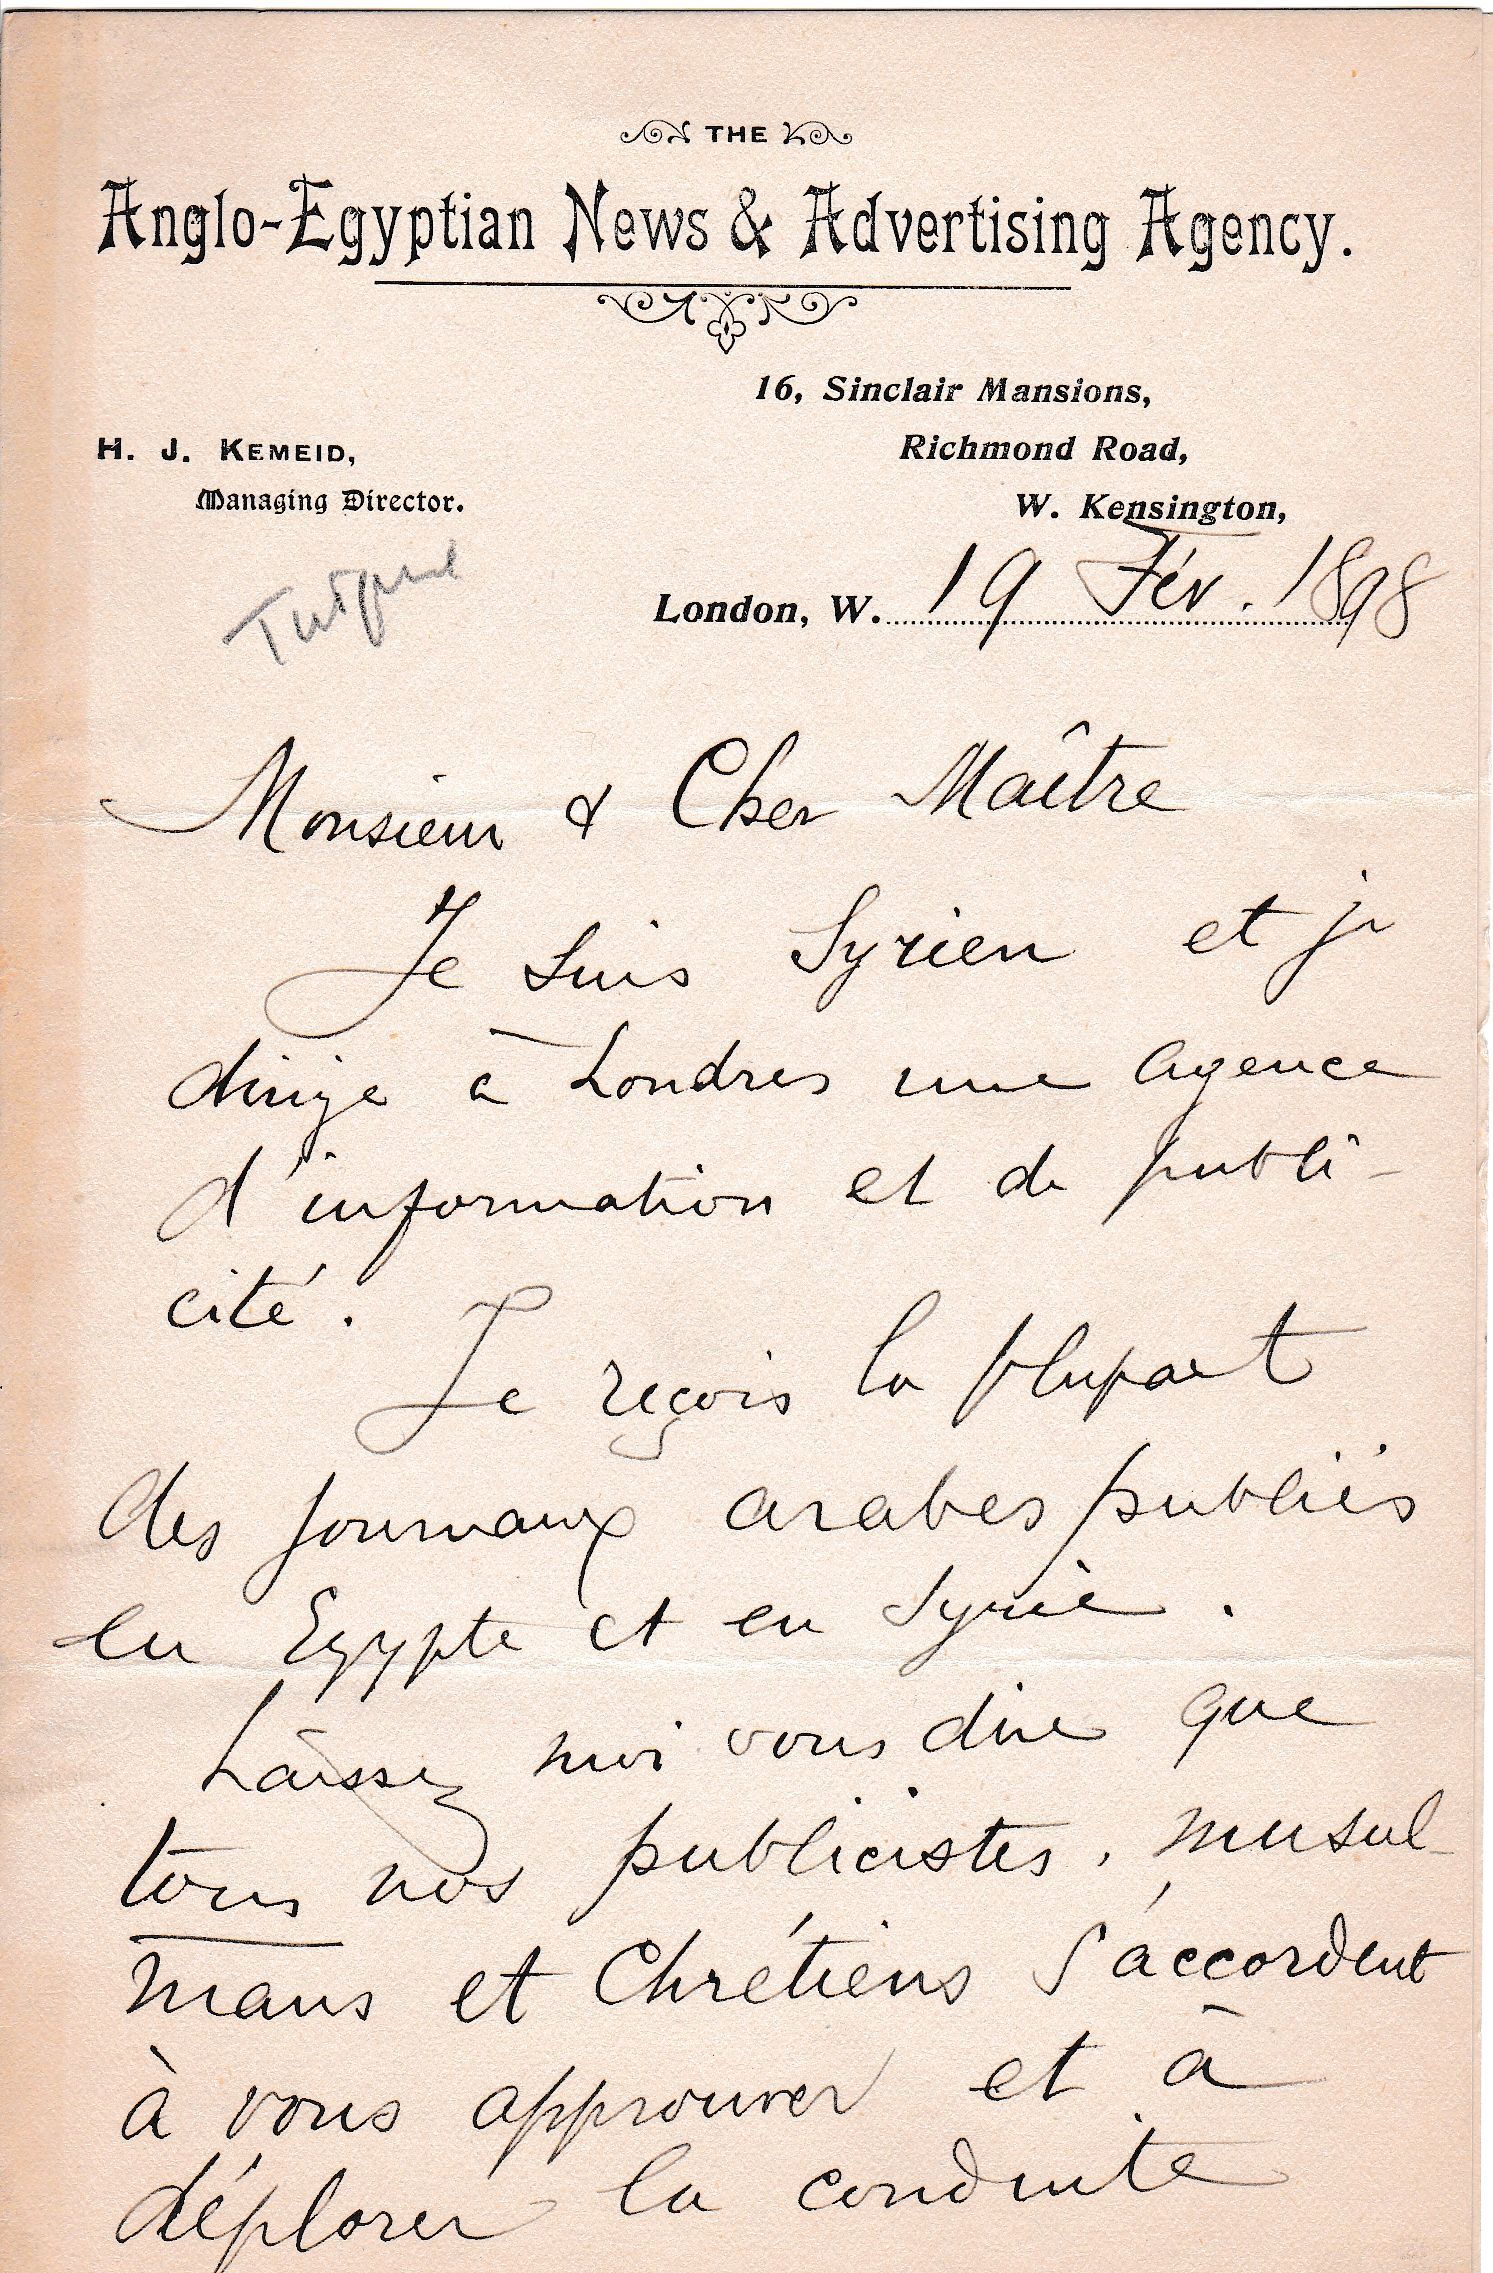 THE
Anglo-Egyptian News & Advertising Agency.
16, Sinclair Mansions,
H. J. KEMEID,
Richmond Road,
Managing Director.
W. Kensington,
London, W. 19 Fév. 1898
Monsieur & Cher Maître
Je suis Syrien et je
dirige à Londres une agence
d'information et de publi-
cité.
Je reçois la plupart
des journaux arabes publiés
en Egypte et en Syrie.
Laissez moi vous dire que
tous nos publicistes, musul-
mans et Chrétiens s'accordent
à vous approuver et à
déplorer la conduite